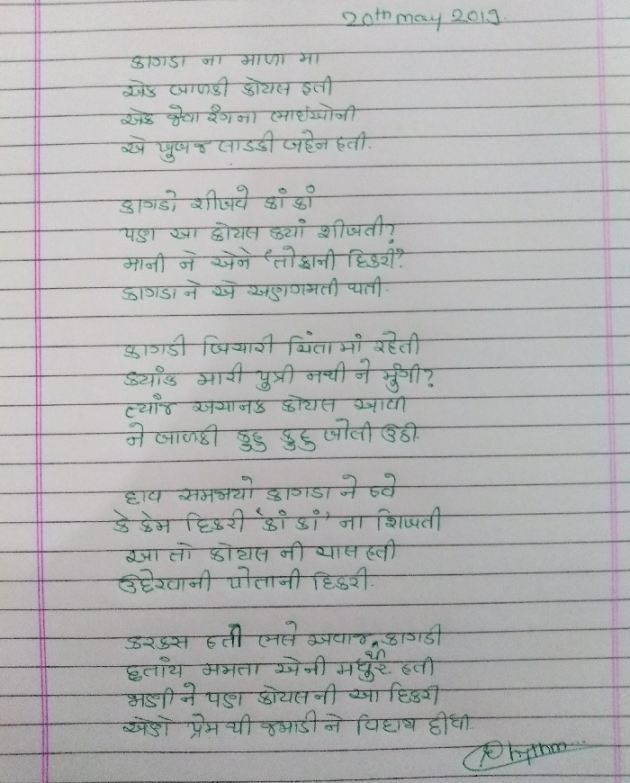 20th may 2019.
કાગડા ના માળા મા
એક બાળકી કોયલ હતી
એક જેવા રંગના ભાઇઓની
એ ખુબજ લાડકી બહેન હતી.
કાગડો શીખવે કાં કાં
પણ આ કોયલ ક્યાં શીખતી?
માની ને એને 'તોફાની દિકરી'?
કાગડા ને એ અણગમતી થતી.
કાગડી બિચારી ચિંતા માં રહેતી
ક્યાંક મારી પુત્રી નથી ને મુંગી?
ત્યાંજ અચાનક કોયલ આવી
ને બાળકી કુહુ કુહુ બોલી ઉઠી.
દાવ સમજાયો કાગડા ને હવે
કે કેમ દિકરી 'કાં કાં' ના શિખતી
આ તો કોયલ ની ચાલ હતી
ઉછેરવાની પોતાની દિકરી.
કરકસ હતી ભલે અવાજ થી કાગડી
છતાંય મમતા એની મધુર હતી
જાણી ને પણ કોયલ ની આ દિકરી
એણે પ્રેમ થી જમાડી ને વિદાય દીધી.
Rhythm...